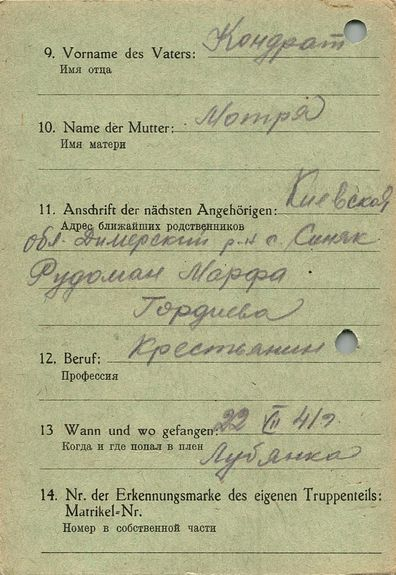 9. Vorname des Vaters: Кондрат
Имя отца
10. Name der Mutter: Мотря
Имя матери
11. Anschrift der nächsten Angehörigen: Киевской
Адрес ближайших родственников
обл. Димерский р-н с. Синяк
Рудоман Марфа
Гордиева
12. Beruf: Крестьянин
Профессия
13 Wann und wo gefangen: 22 VII 41г.
Когда и где попал в плен
Лубянка
14. Nr. der Erkennungsmarke des eigenen Truppenteils:
Matrikel-Nr.
Номер в собственной части